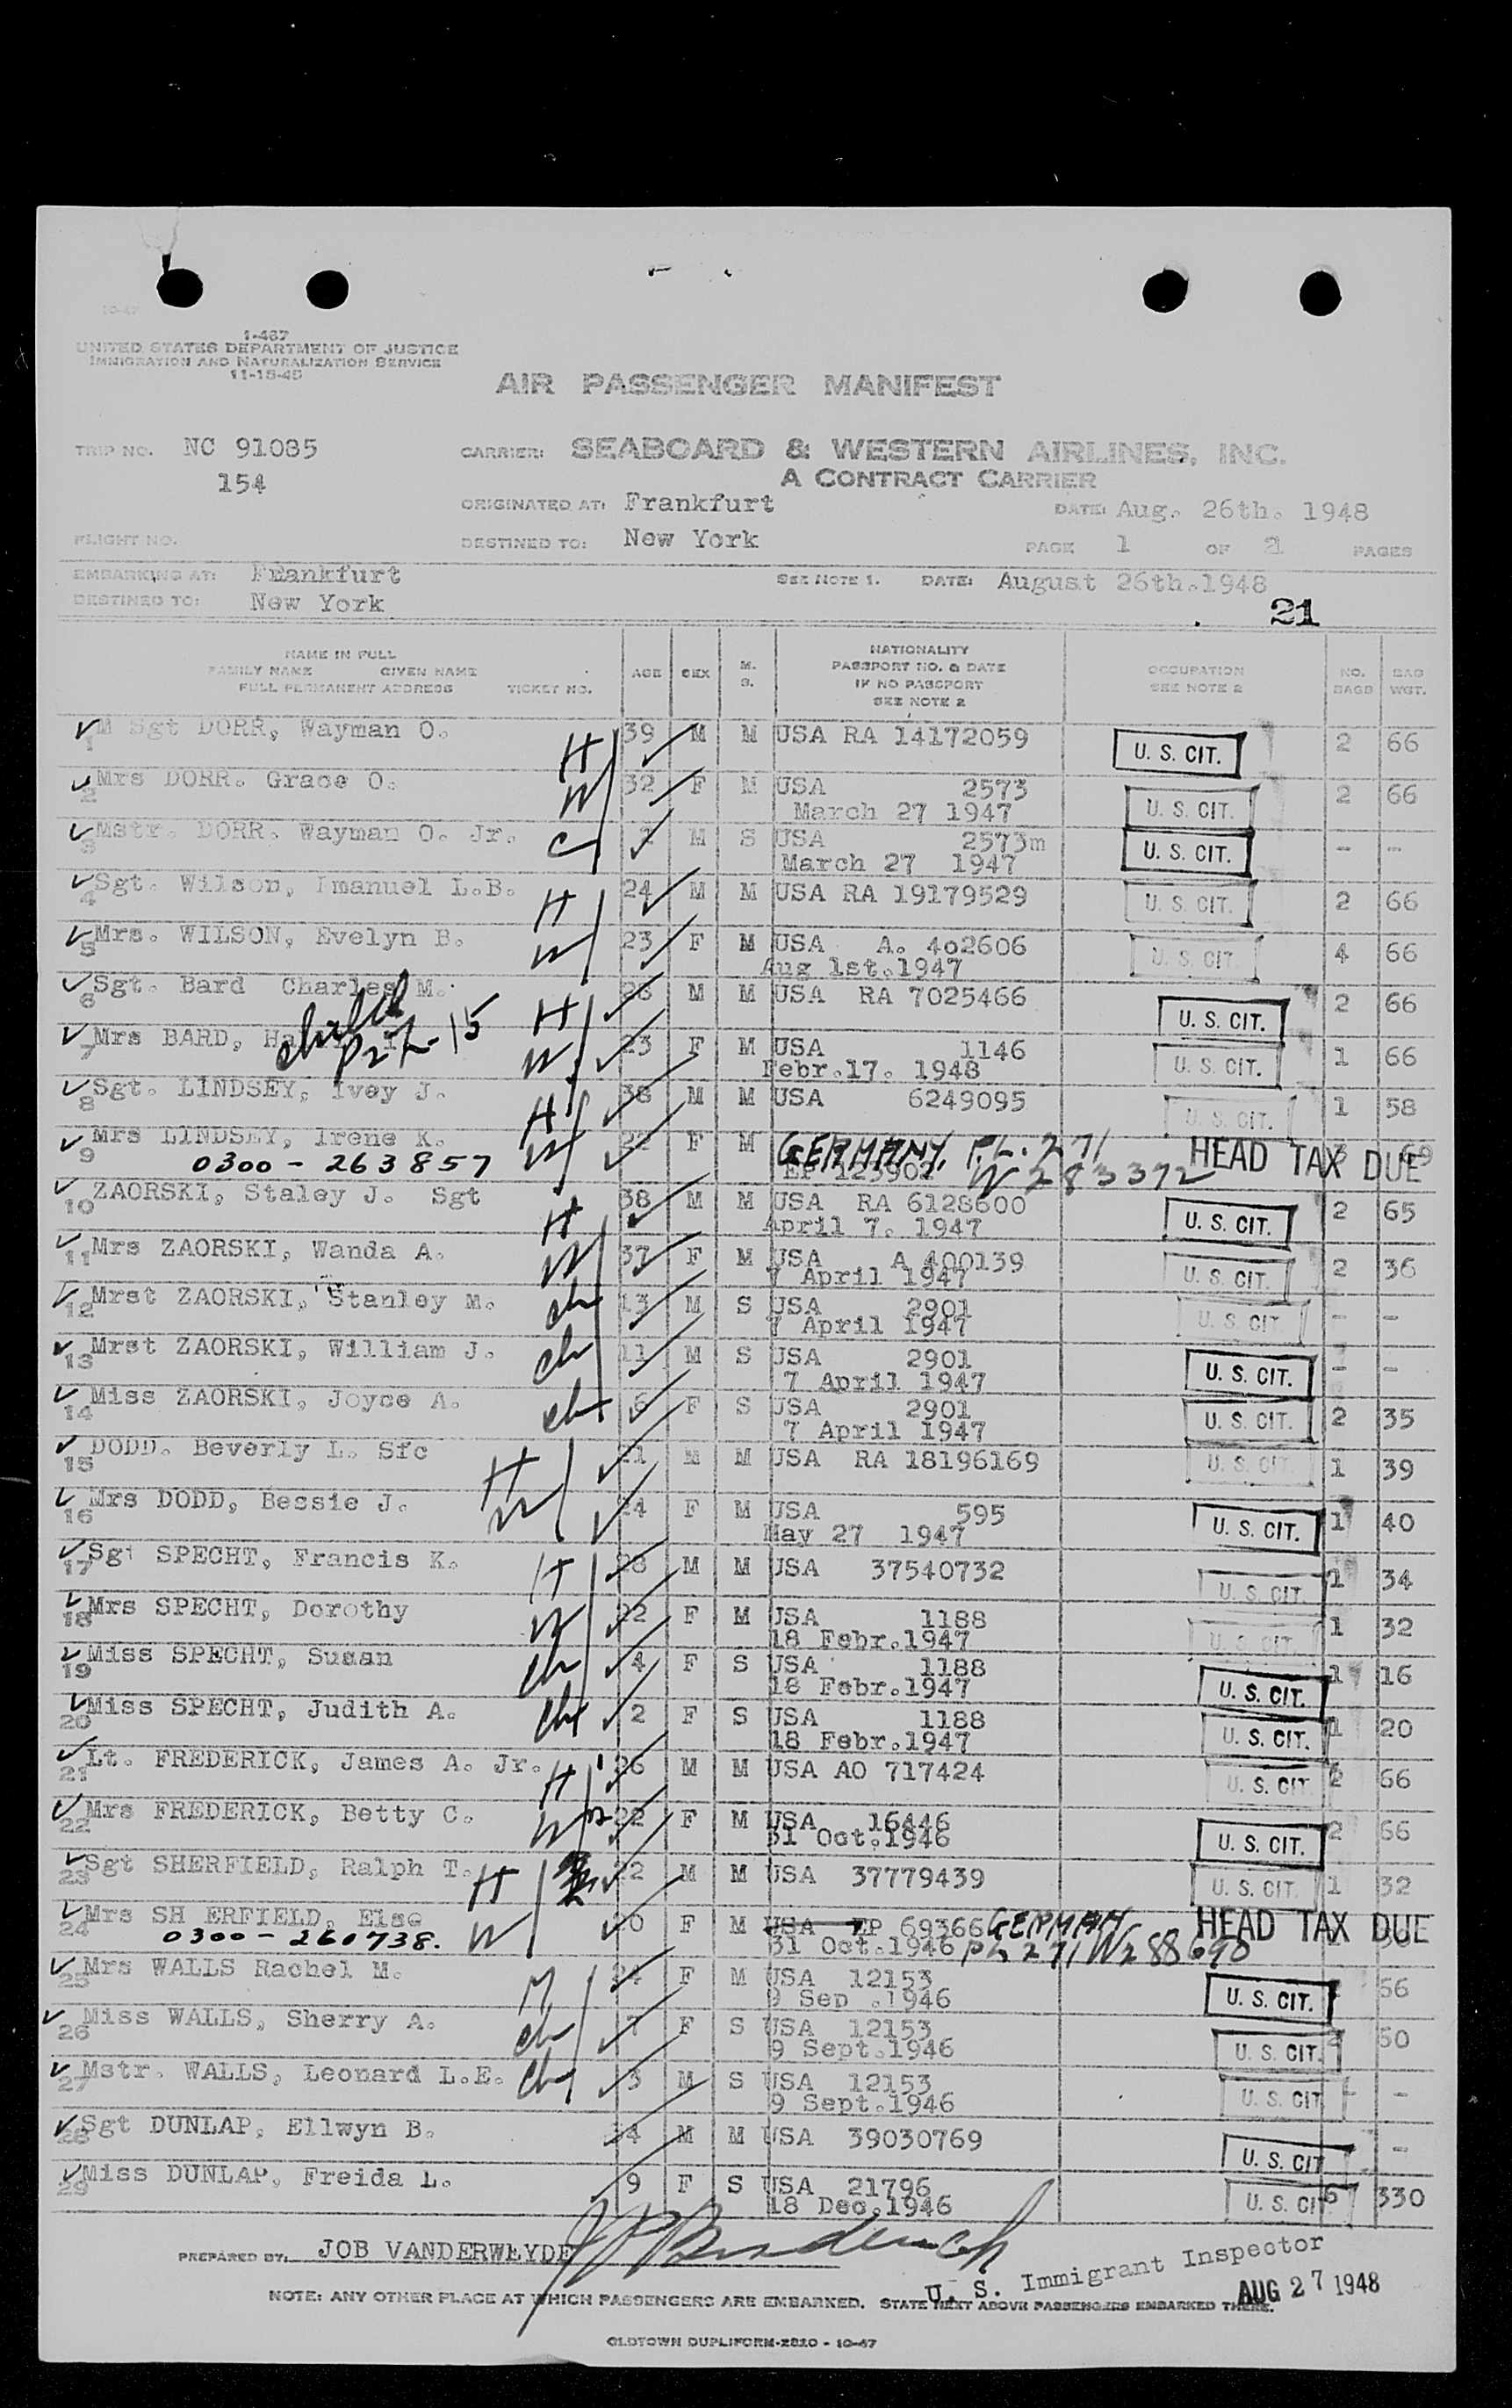 1-467
UNITED STATES DEPARTMENT OF JUSTICE
IMMIGRATION AND NATURALIZATION SERVICE
11-15-45
AIR PASSENGER MANIFEST
TRIP NO. NC 91085 CARRIER: SEABOARD & WESTERN AIRLINES, INC.
154 A CONTRACT CARRIER
ORIGINATED AT: Frankfurt DATE: Aug. 26th. 1948
FLIGHT NO. DESTINED TO: New York PAGE 1 OF 2 PAGES
EMBARKING AT: Frankfurt SEE NOTE 1. DATE: August 26th.1948
DESTINED TO: New York
21
NAME IN FULL
FAMILY NAME GIVEN NAME
FULL PERMANENT ADDRESS TICKET NO. AGE SEX M. S. NATIONALITY PASSPORT NO. & DATE IF NO PASSPORT SEE NOTE 2 OCCUPATION SEE NOTE 2 NO. BAGS BAG WGT.
1 M Sgt DORR, Wayman O. H 39 M M USA RA 14172059 U. S. CIT. 2 66
2 Mrs DORR. Grace O. W 32 F M USA 2573 U. S. CIT. 2 66
March 27 1947
3 Mstr. DORR. Wayman O. Jr. C M S USA 2573m U. S. CIT. - -
March 27 1947
4 Sgt. Wilson, Imanuel L.B. H 24 M M USA RA 19179529 U. S. CIT. 2 66
5 Mrs. WILSON, Evelyn B. W 23 F M USA A. 402606 U. S. CIT. 4 66
Aug 1st.1947
6 Sgt. Bard Charles M. H 26 M M USA RA 7025466 U. S. CIT. 2 66
child
7 Mrs BARD, W 23 F M USA 1146 U. S. CIT. 1 66
Febr.17. 1948
8 Sgt. LINDSEY, Ivey J. H 38 M M USA 6249095 U. S. CIT. 1 58
9 Mrs LINDSEY, Irene K. W 22 F M GERMANY. P.L. 271 HEAD TAX DUE
0300-263857 EP 123902 W 283372
10 ZAORSKI, Staley J. Sgt H 38 M M USA RA 6128600 U. S. CIT. 2 65
April 7. 1947
11 Mrs ZAORSKI, Wanda A. W 37 F M USA A 400139 U. S. CIT. 2 36
7 April 1947
12 Mrst ZAORSKI, Stanley M. ch 13 M S USA 2901 U. S. CIT. - -
7 April 1947
13 Mrst ZAORSKI, William J. ch 11 M S USA 2901 U. S. CIT. - -
7 April 1947
14 Miss ZAORSKI, Joyce A. ch 6 F S USA 2901 U. S. CIT. 2 35
7 April 1947
15 DODD. Beverly L. Sfc H 21 M M USA RA 18196169 U. S. CIT. 1 39
16 Mrs DODD, Bessie J. W 24 F M USA 595 U. S. CIT. 1 40
May 27 1947
17 Sgt SPECHT, Francis K. H 28 M M USA 37540732 U. S. CIT. 1 34
18 Mrs SPECHT, Dorothy W 22 F M USA 1188 U. S. CIT. 1 32
18 Febr.1947
19 Miss SPECHT, Susan ch 4 F S USA 1188 U. S. CIT. 1 16
18 Febr.1947
20 Miss SPECHT, Judith A. ch 2 F S USA 1188 U. S. CIT. 1 20
18 Febr.1947
21 Lt. FREDERICK, James A. Jr. H 26 M M USA AO 717424 U. S. CIT. 2 66
22 Mrs FREDERICK, Betty C. W 22 F M USA 16446 U. S. CIT. 2 66
31 Oct.1946
23 Sgt SHERFIELD, Ralph T. H 22 M M USA 37779439 U. S. CIT. 1 32
24 Mrs SH ERFIELD, Else W 20 F M USA EP 69366 GERMAN HEAD TAX DUE
0300-260738. 31 Oct.1946 PL 271 W288690
25 Mrs WALLS Rachel M. M 24 F M USA 12153 U. S. CIT. 56
9 Sep .1946
26 Miss WALLS, Sherry A. ch 7 F S USA 12153 U. S. CIT. 2 50
9 Sept.1946
27 Mstr. WALLS, Leonard L.E. ch 3 M S USA 12153 U. S. CIT - -
9 Sept.1946
28 Sgt DUNLAP, Ellwyn B. 34 M M USA 39030769 U. S. CIT -
29 Miss DUNLAP, Freida L. 9 F S USA 21796 U. S. CIT 6 330
18 Dec.1946
PREPARED BY: JOB VANDERWEYDE
U. S. Immigrant Inspector
NOTE: ANY OTHER PLACE AT WHICH PASSENGERS ARE EMBARKED. STATE NEXT ABOVE PASSENGERS EMBARKED THERE.
AUG 27 1948
OLDTOWN DUPLIFORM-2820 - 10-47